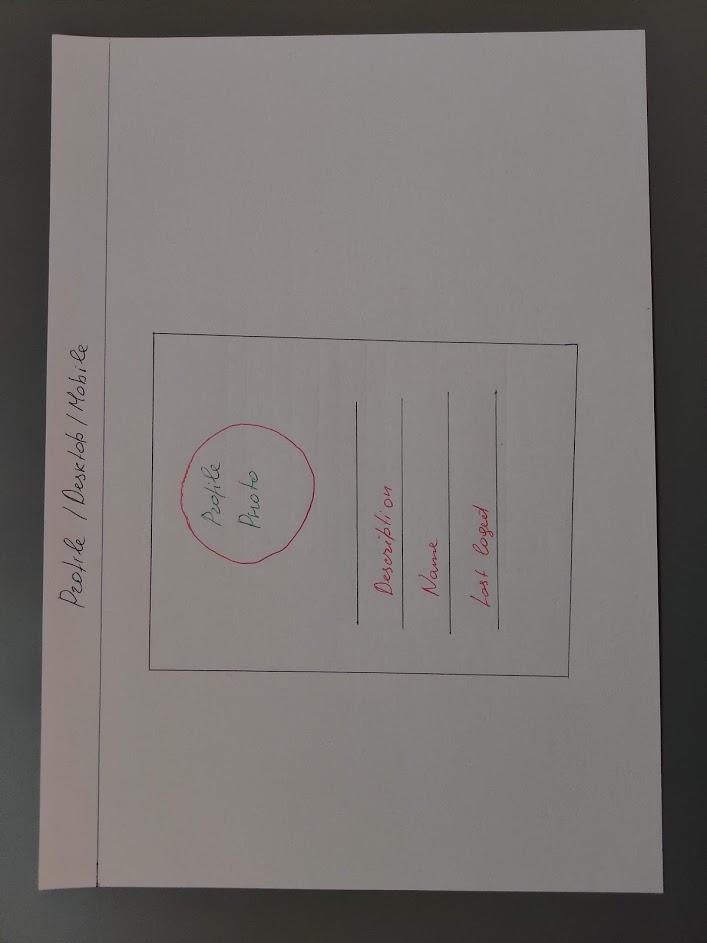 Profile / Desktop / Mobile
Profile
Photo
Description
Name
Last loged